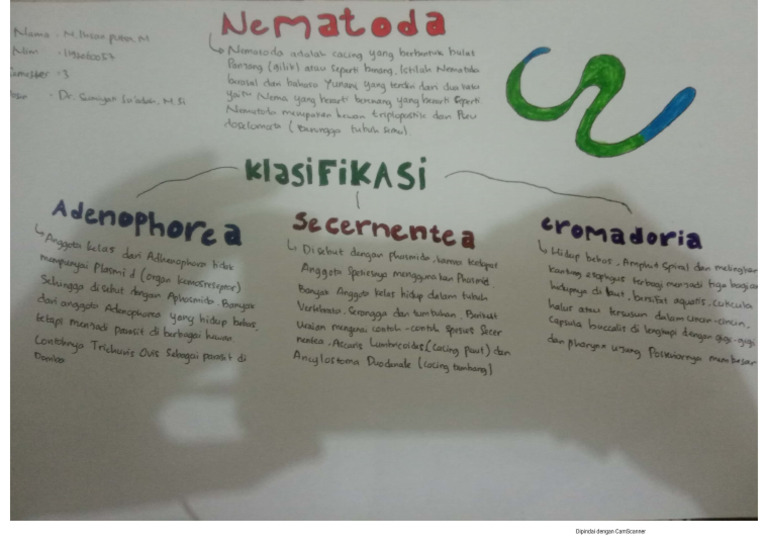 Nematoda
Nama : M. Ihsan putra. M
Nim :
Semester : 3
Dosen : Dr. M. Si
Nematoda adalah cacing yang berbentuk bulat
Panjang (gilik) atau seperti benang. Istilah Nematoda
berasal dari bahasa Yunani yang terdiri dari dua kata
yaitu Nema yang berarti benang yang berarti seperti
Nematoda merupakan hewan triploblastik dan Pseu
doselomata (berongga tubuh semu).
KlasiFiKASi
Adenophorea
Anggota kelas dari Adhenophora tidak
mempunyai Plasmid (organ kemoreseptor)
Sehingga disebut dengan Aphasmida. Banyak
dari anggota Adenophorea yang hidup bebas.
tetapi menjadi parasit di berbagai hewan.
Contohnya Trichuris Ovis Sebagai parasit di
Domba
Secernentea
Disebut dengan phasmida, karena terdapat
Anggota Spesiesnya menggunakan Phasmid.
Banyak Anggota kelas hidup dalam tubuh
Vertebrata, Serangga dan tumbuhan. Berikut
Uraian mengenai contoh-contoh Spesies Secer
nentea. Ascaris Lumbricoides (Cacing perut) dan
Ancylostoma Duodenale (cacing tambang)
cromadoria
Hidup bebas. Amphid Spiral dan melingkar
kantung esophagus terbagi menjadi tiga bagian
hidupnya di laut, bersifat aquatis, cuticula
halus atau tersusun dalam cincin-cincin.
Capsula buccalis di lengkapi dengan gigi-gigi
dan pharynx ujung Posteriornya membesar
Dipindai dengan CamScanner